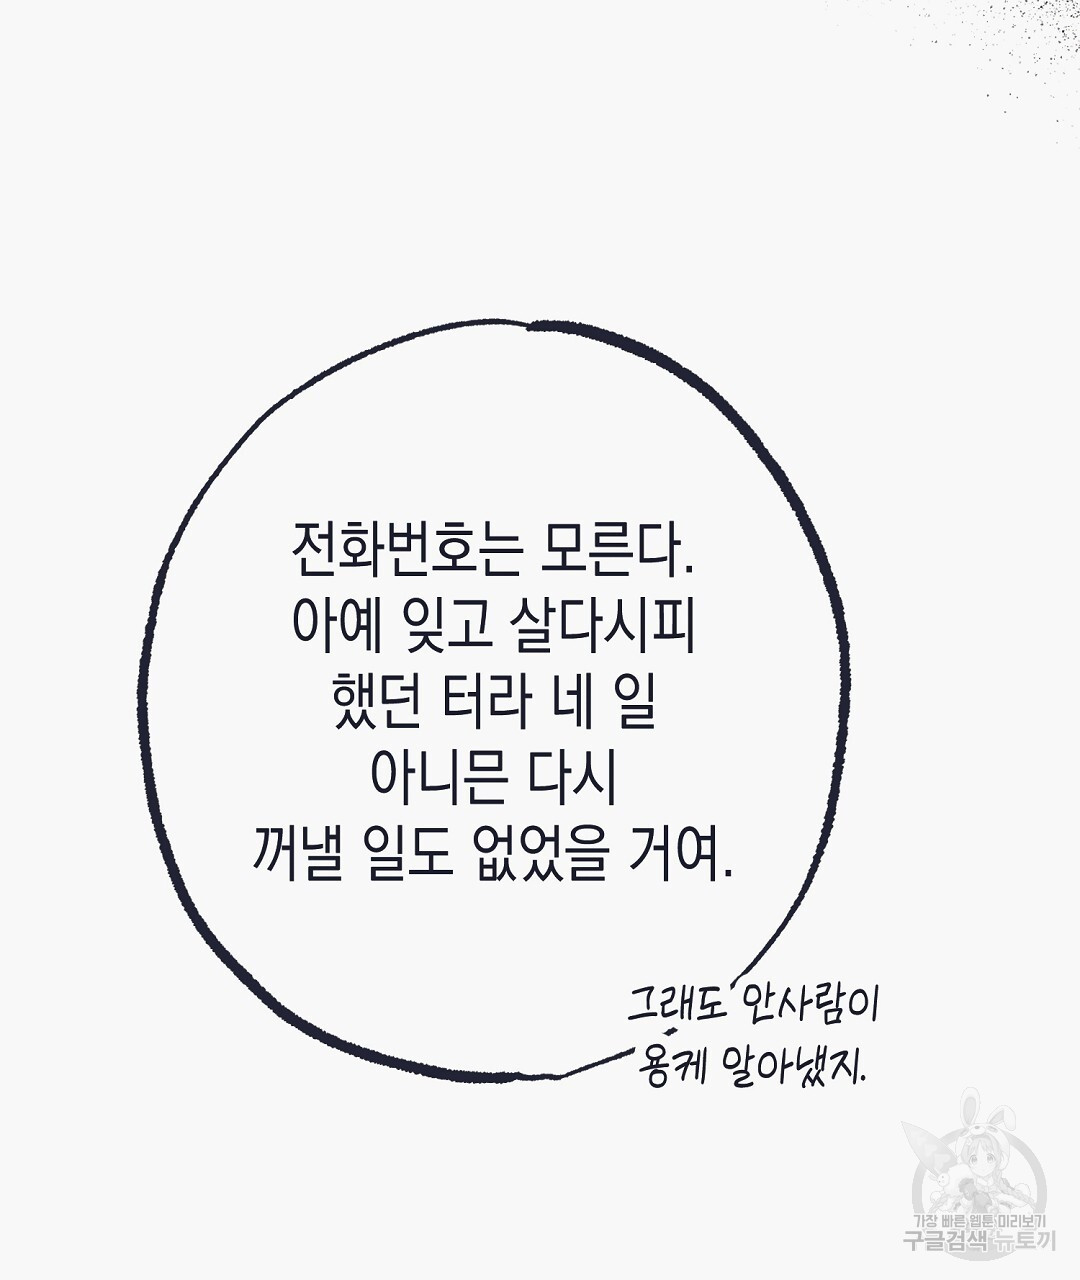 전화번호는 모른다.
아예 잊고 살다시피
했던 터라 네 일
아니믄 다시
꺼낼 일도 없었을 거여.
그래도 안사람이
용케 알아냈지.
가장 빠른 웹툰 미리보기
구글검색 뉴토끼